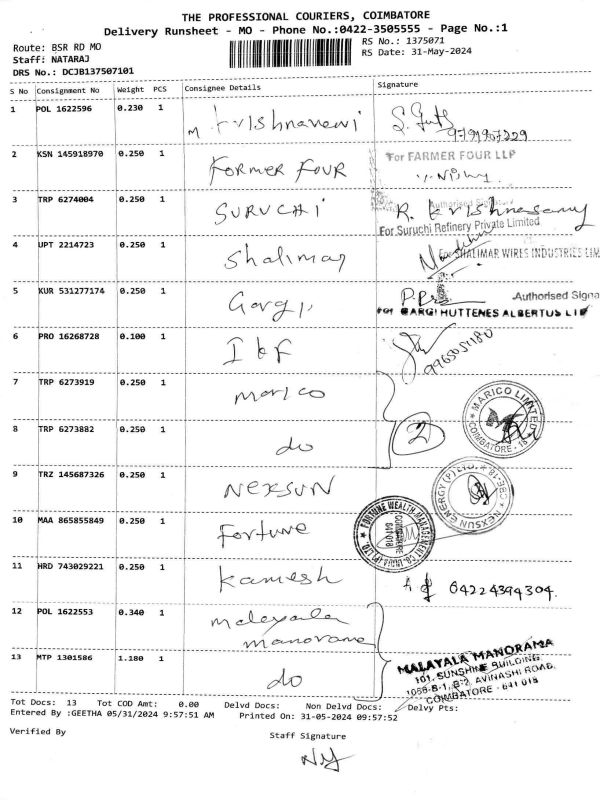 THE PROFESSIONAL COURIERS, COIMBATORE
Delivery Runsheet - MO - Phone No.:0422-3505555 - Page No.:1
Route: BSR RD MO
RS No.: 1375071
Staff: NATARAJ
RS Date: 31-May-2024
DRS No.: DCJB137507101
S No Consignment No Weight PCS Consignee Details Signature
1 POL 1622596 0.230 1 M Krishnaveni
2 KSN 145918970 0.250 1 FORMER FOUR For FARMER FOUR LLP
3 TRP 6274004 0.250 1 SURUCHi R. Krishnasamy
Authorised
For Suruchi Refinery Private Limited
4 UPT 2214723 0.250 1 Shalimar For SHALIMAR WIRES INDUSTRIES LIM
5 KUR 531277174 0.250 1 Gargi
Authorised Signa
For GARGI HUTTENES ALBERTUS
6 PRO 16268728 0.100 1
7 TRP 6273919 0.250 1 marico
MARICO LIMITED
COIMBATORE - 18
8 TRP 6273882 0.250 1 do 2
9 TRZ 145687326 0.250 1 NEXSUN
NEXSUN ENERGY (P) LTD. CBE-18
10 MAA 865855849 0.250 1 Fortune
FORTUNE WEALTH MANAGEMENT CO. INDIA (P) LTD.
COIMBATORE
641 018
11 HRD 743029221 0.250 1 Kamesh 04224394304.
12 POL 1622553 0.340 1 malayala
manorama
13 MTP 1301586 1.180 1 do
MALAYALA MANORAMA
101, SUNSHINE BUILDING,
1056-B-1, B-2, AVINASHI ROAD,
COIMBATORE - 641 018
Tot Docs: 13 Tot COD Amt: 0.00 Delvd Docs: Non Delvd Docs: Delvy Pts:
Entered By :GEETHA 05/31/2024 9:57:51 AM Printed On: 31-05-2024 09:57:52
Verified By Staff Signature